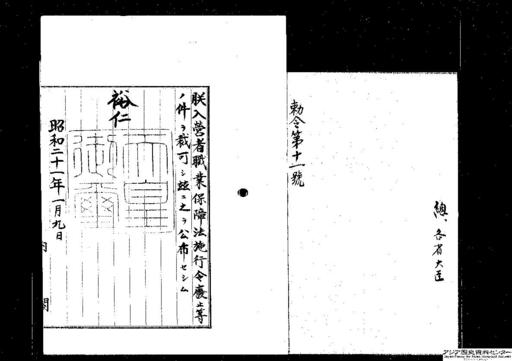 勅令第十一號
總、各省大臣
朕入營者職業保障法施行令廢止等
ノ件ヲ裁可シ茲ニ之ヲ公布セシム
裕仁
天皇御璽
昭和二十一年一月九日
内閣
アジア歴史資料センター